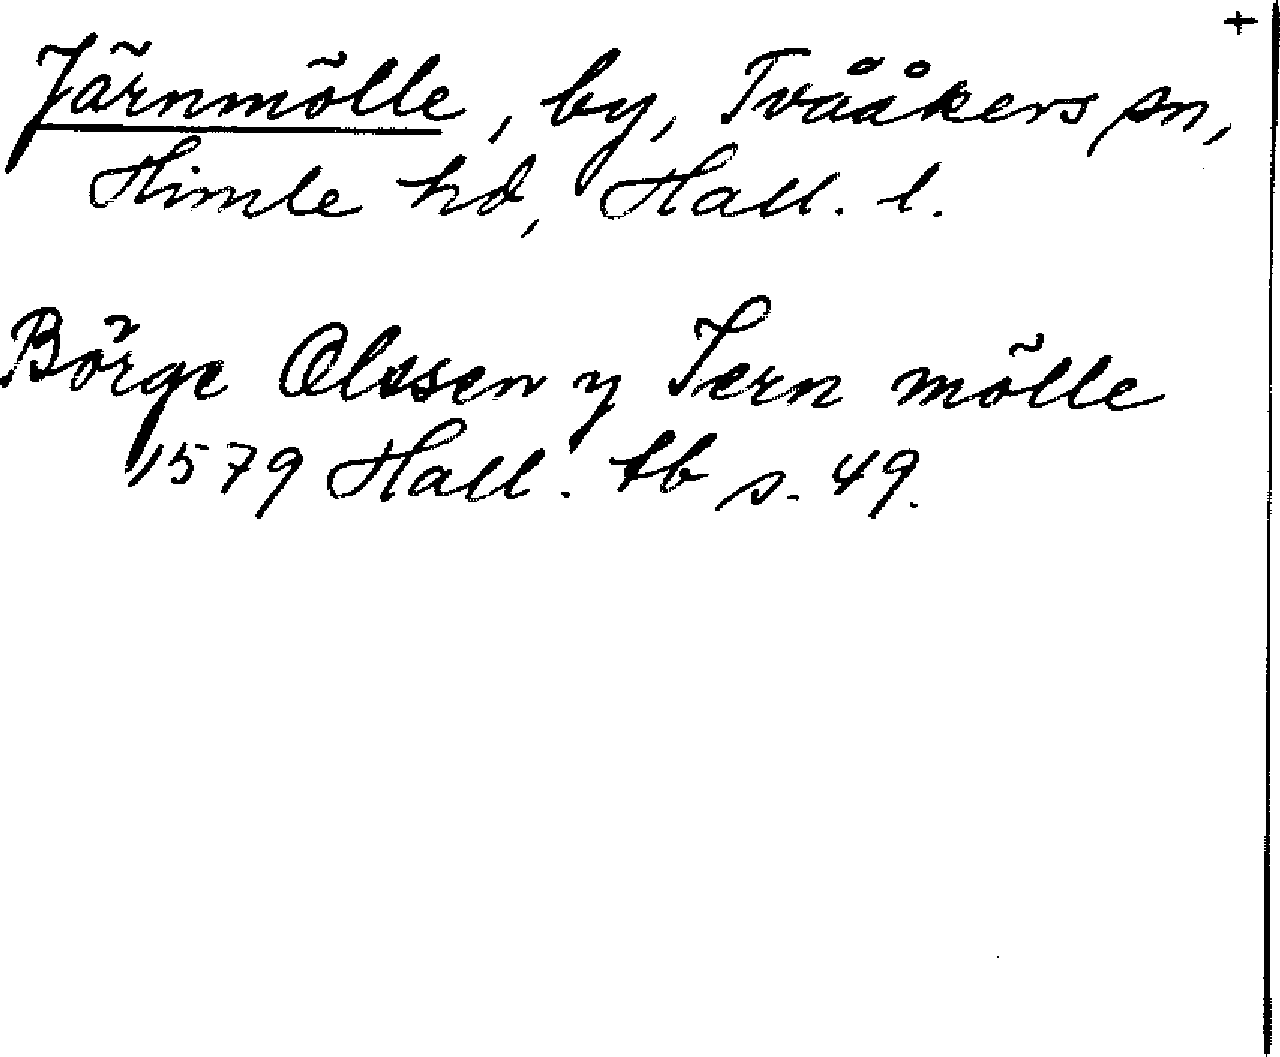 +
Järnmölle, by, Tvååkers sn,
Himle hd, Hall. l.
Börge Olssen y Jern mölle
1579 Hall. tb s. 49.